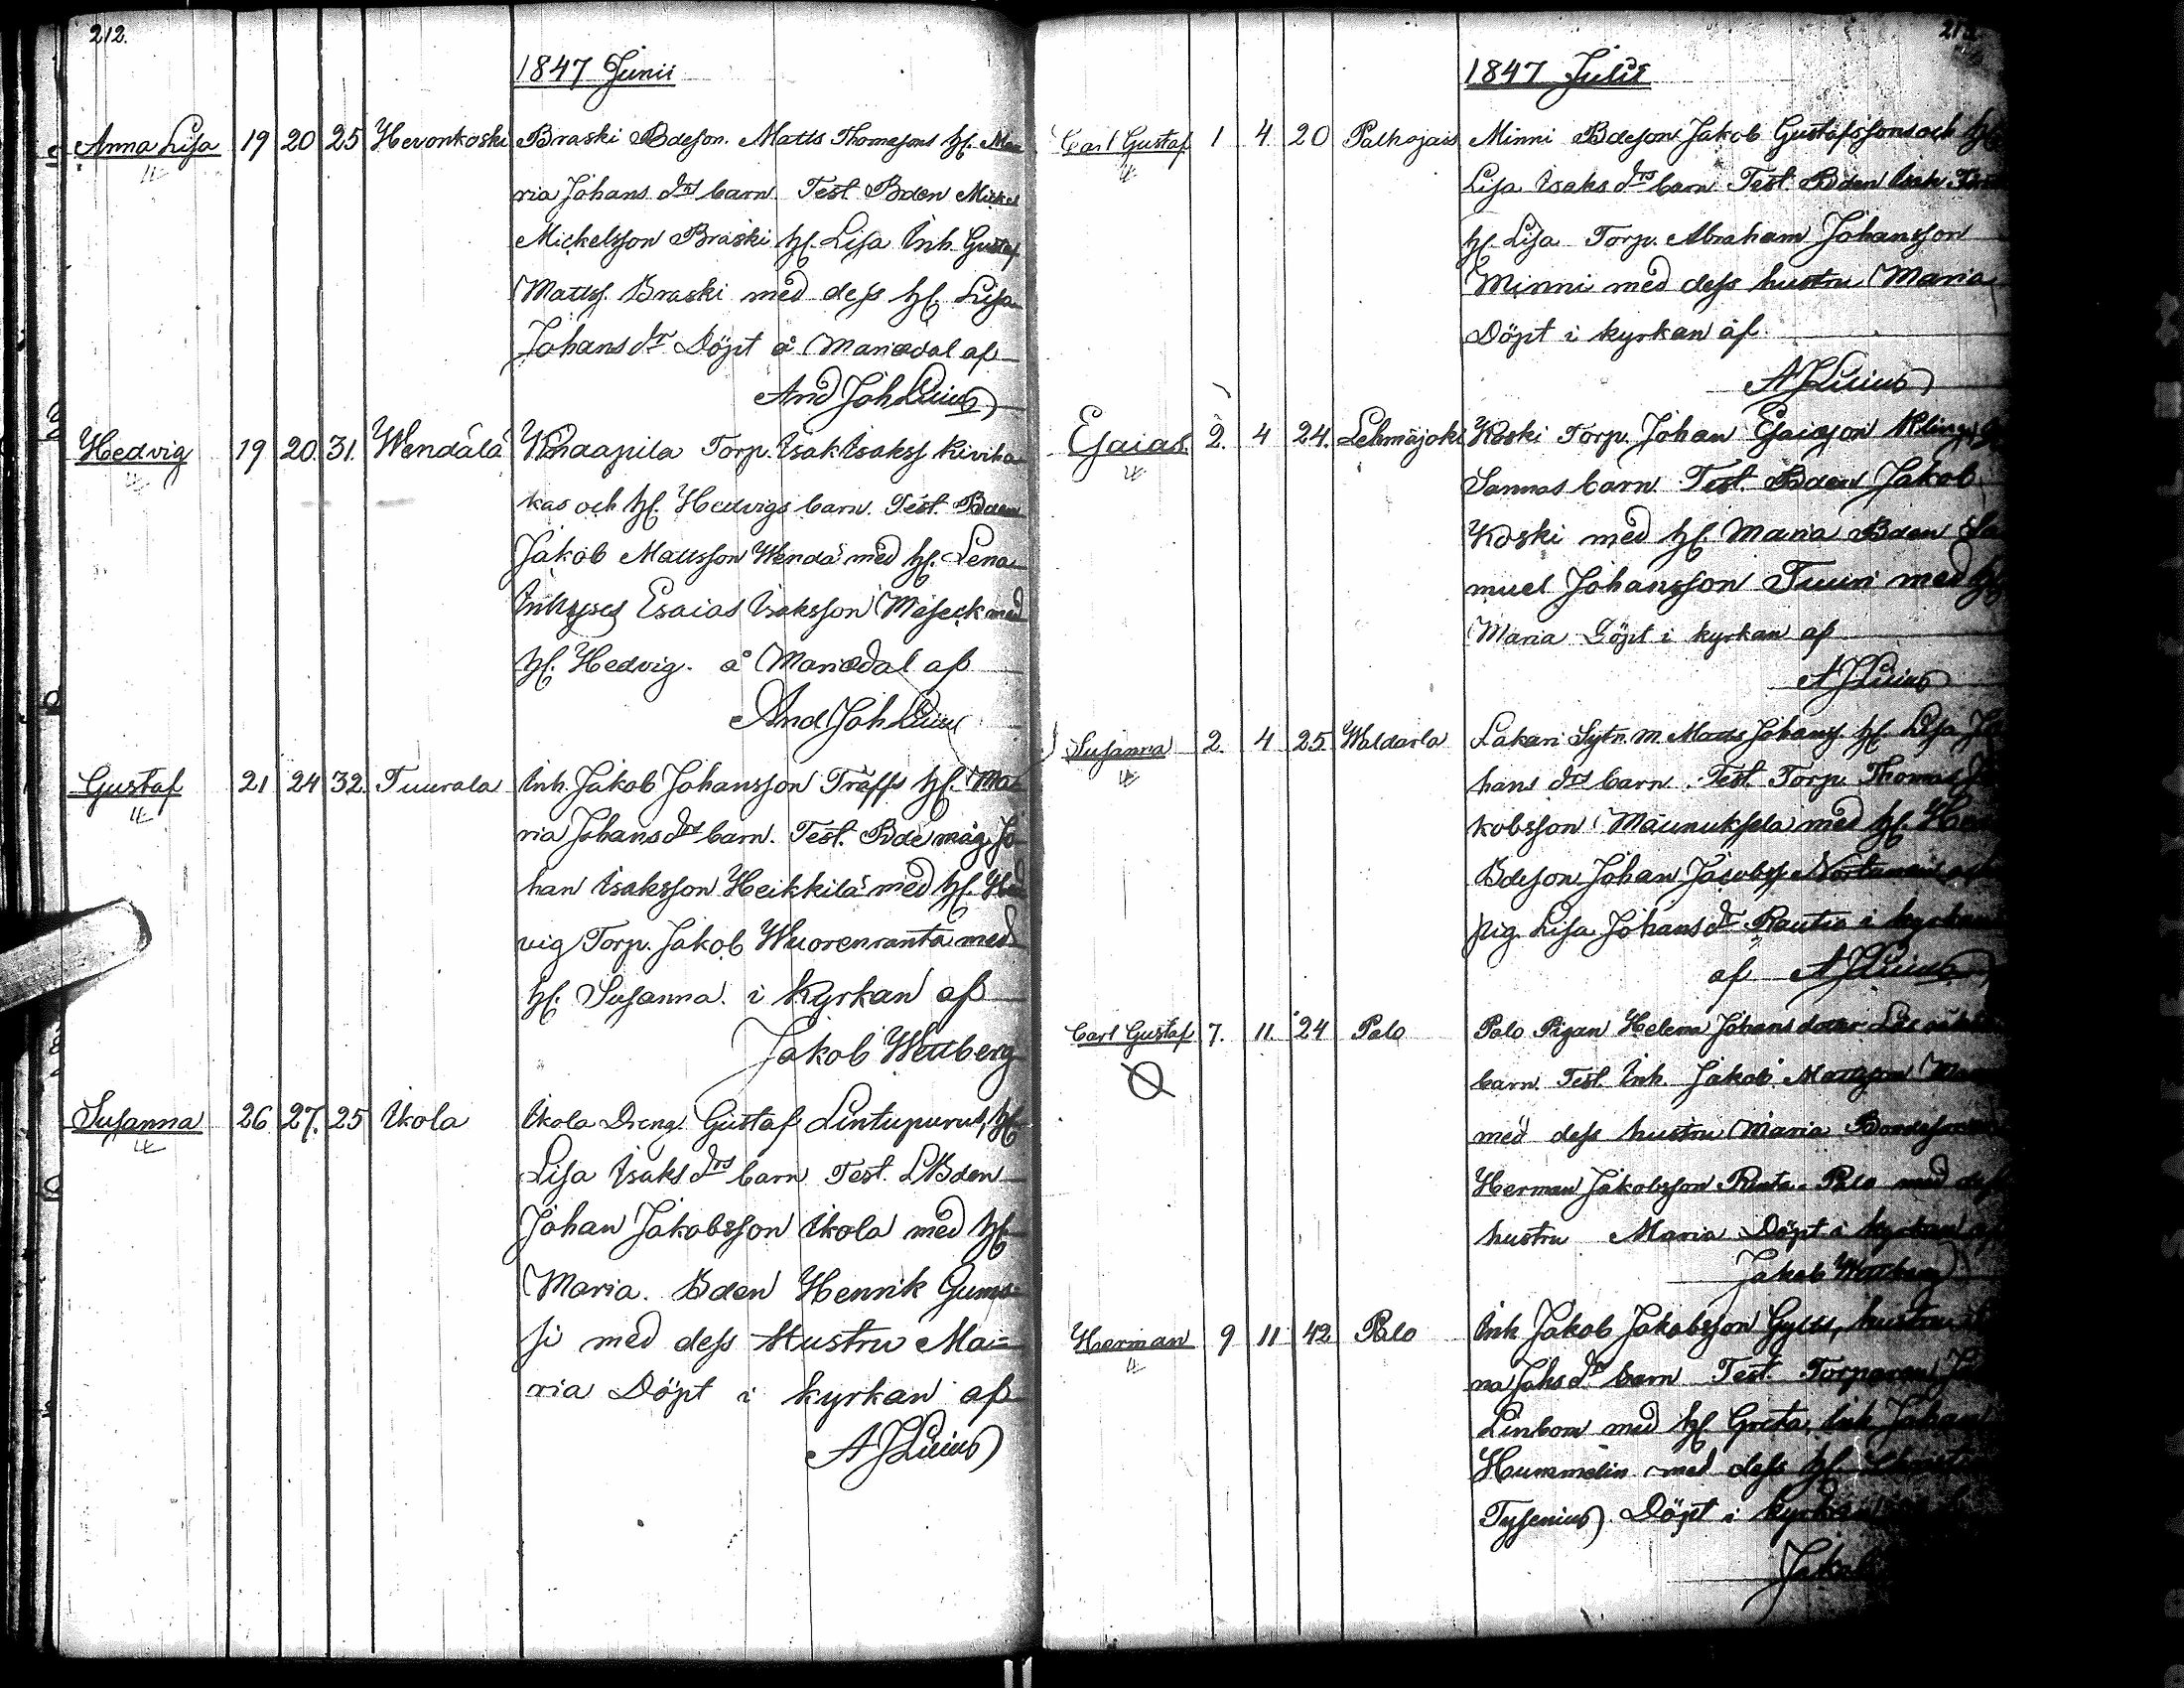 212.
1847 Junii
Anna Lisa 19 20 25 Hevonkoski Braski Bdeson. Matts Thomasons hſ. Ma
ria Johans drs barn. Test. Bden Mickel
Mickelsson Braski hſ. Lisa Inh. Gustaf
Mattss. Braski med dess hſ. Lisa
Johans dr Döpt å Mariedal af
And Joh Lucius
Hedvig 19 20. 31. Wendälä Torp. Isak Isakss Kiviha
kas och hſ. Hedvigs barn. Test. Bden
Jakob Mattsson Wendä med hſ. Lena
Inhyses Esaias Isaksson Meseck med
hſ. Hedvig. å Mariedal af
And Joh Lucius
Gustaf 21 24 32. Tuurala Inh. Jakob Johansson Träffs hſ. Ma
ria Johans drs barn. Test. Bde måg Jo
han Isaksson Heikkilä med hſ. Hed
vig Torp. Jakob Wuorenranta med
hſ. Susanna. i Kyrkan af
Jakob Wettberg
Susanna 26 27. 25 Ikola Ikola Dreng. Gustaf Lintupurus, hſ
Lisa Isaks drs barn Test. LBden
Johan Jakobsson Ikola med hſ
Maria. Bden Henrik Gum
si med dess Hustru Ma=
ria Döpt i kyrkan af
A J Lucius
1847 Julii
Carl Gustaf 1 4 20 Palhojais Minni Bdeson Jakob Gustafssons och hſ
Lisa Isaks drs barn Test Bden Isak
hſ. Lisa Torp. Abraham Johansson
Minni med dess hustru Maria
Döpt i kyrkan af
A J Lucius
Esaias. 2. 4 24. Lehmäjoki Koski Torp. Johan Esaiasson Kling
Sannas barn Test. Bden Jakob
Koski med hſ. Maria Bden Sa
muel Johansson Tuuri med hſ
Maria Döpt i kyrkan af
A J Lucius
Susanna 2. 4 25. Waldarla Lakari Sytn. m. Matts Johanss hſ. Lisa Jo
hans drs barn. Test. Torp. Thomas Ja
kobsson Maunuksela med hſ.
Bdeson Johan Jacobss
pig. Lisa Johans dr Rautio i kyrkan
af A J Lucius
Carl Gustaf 7. 11. 24 Palo Palo Pigan Helena Johans dotter
barn. Test. Inh. Jakob Mattsson
med dess hustru Maria Bondeson
Herman Jakobsson Rinta-Palo med dess
hustru Maria Döpt i kyrkan af
Jakob Wettberg
Herman 9 11 42 Palo Inh Jakob Jakobsson hustru
na Johs dr barn Test. Torparen
Linbom med hſ. Greta, Inh. Johan
Hummelin med dess hſ.
Tysenius. Döpt i kyrkan
Jakob